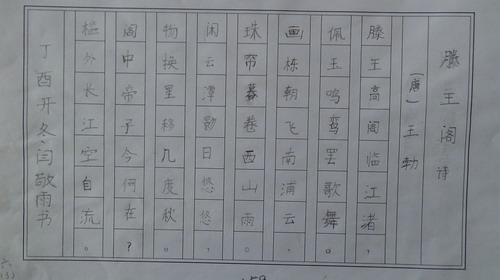 滕王阁 诗
(唐) 王勃
滕王高阁临江渚，
佩玉鸣鸾罢歌舞。
画栋朝飞南浦云，
珠帘暮卷西山雨。
闲云潭影日悠悠，
物换星移几度秋。
阁中帝子今何在？
槛外长江空自流。
丁酉开冬闫敬雨书